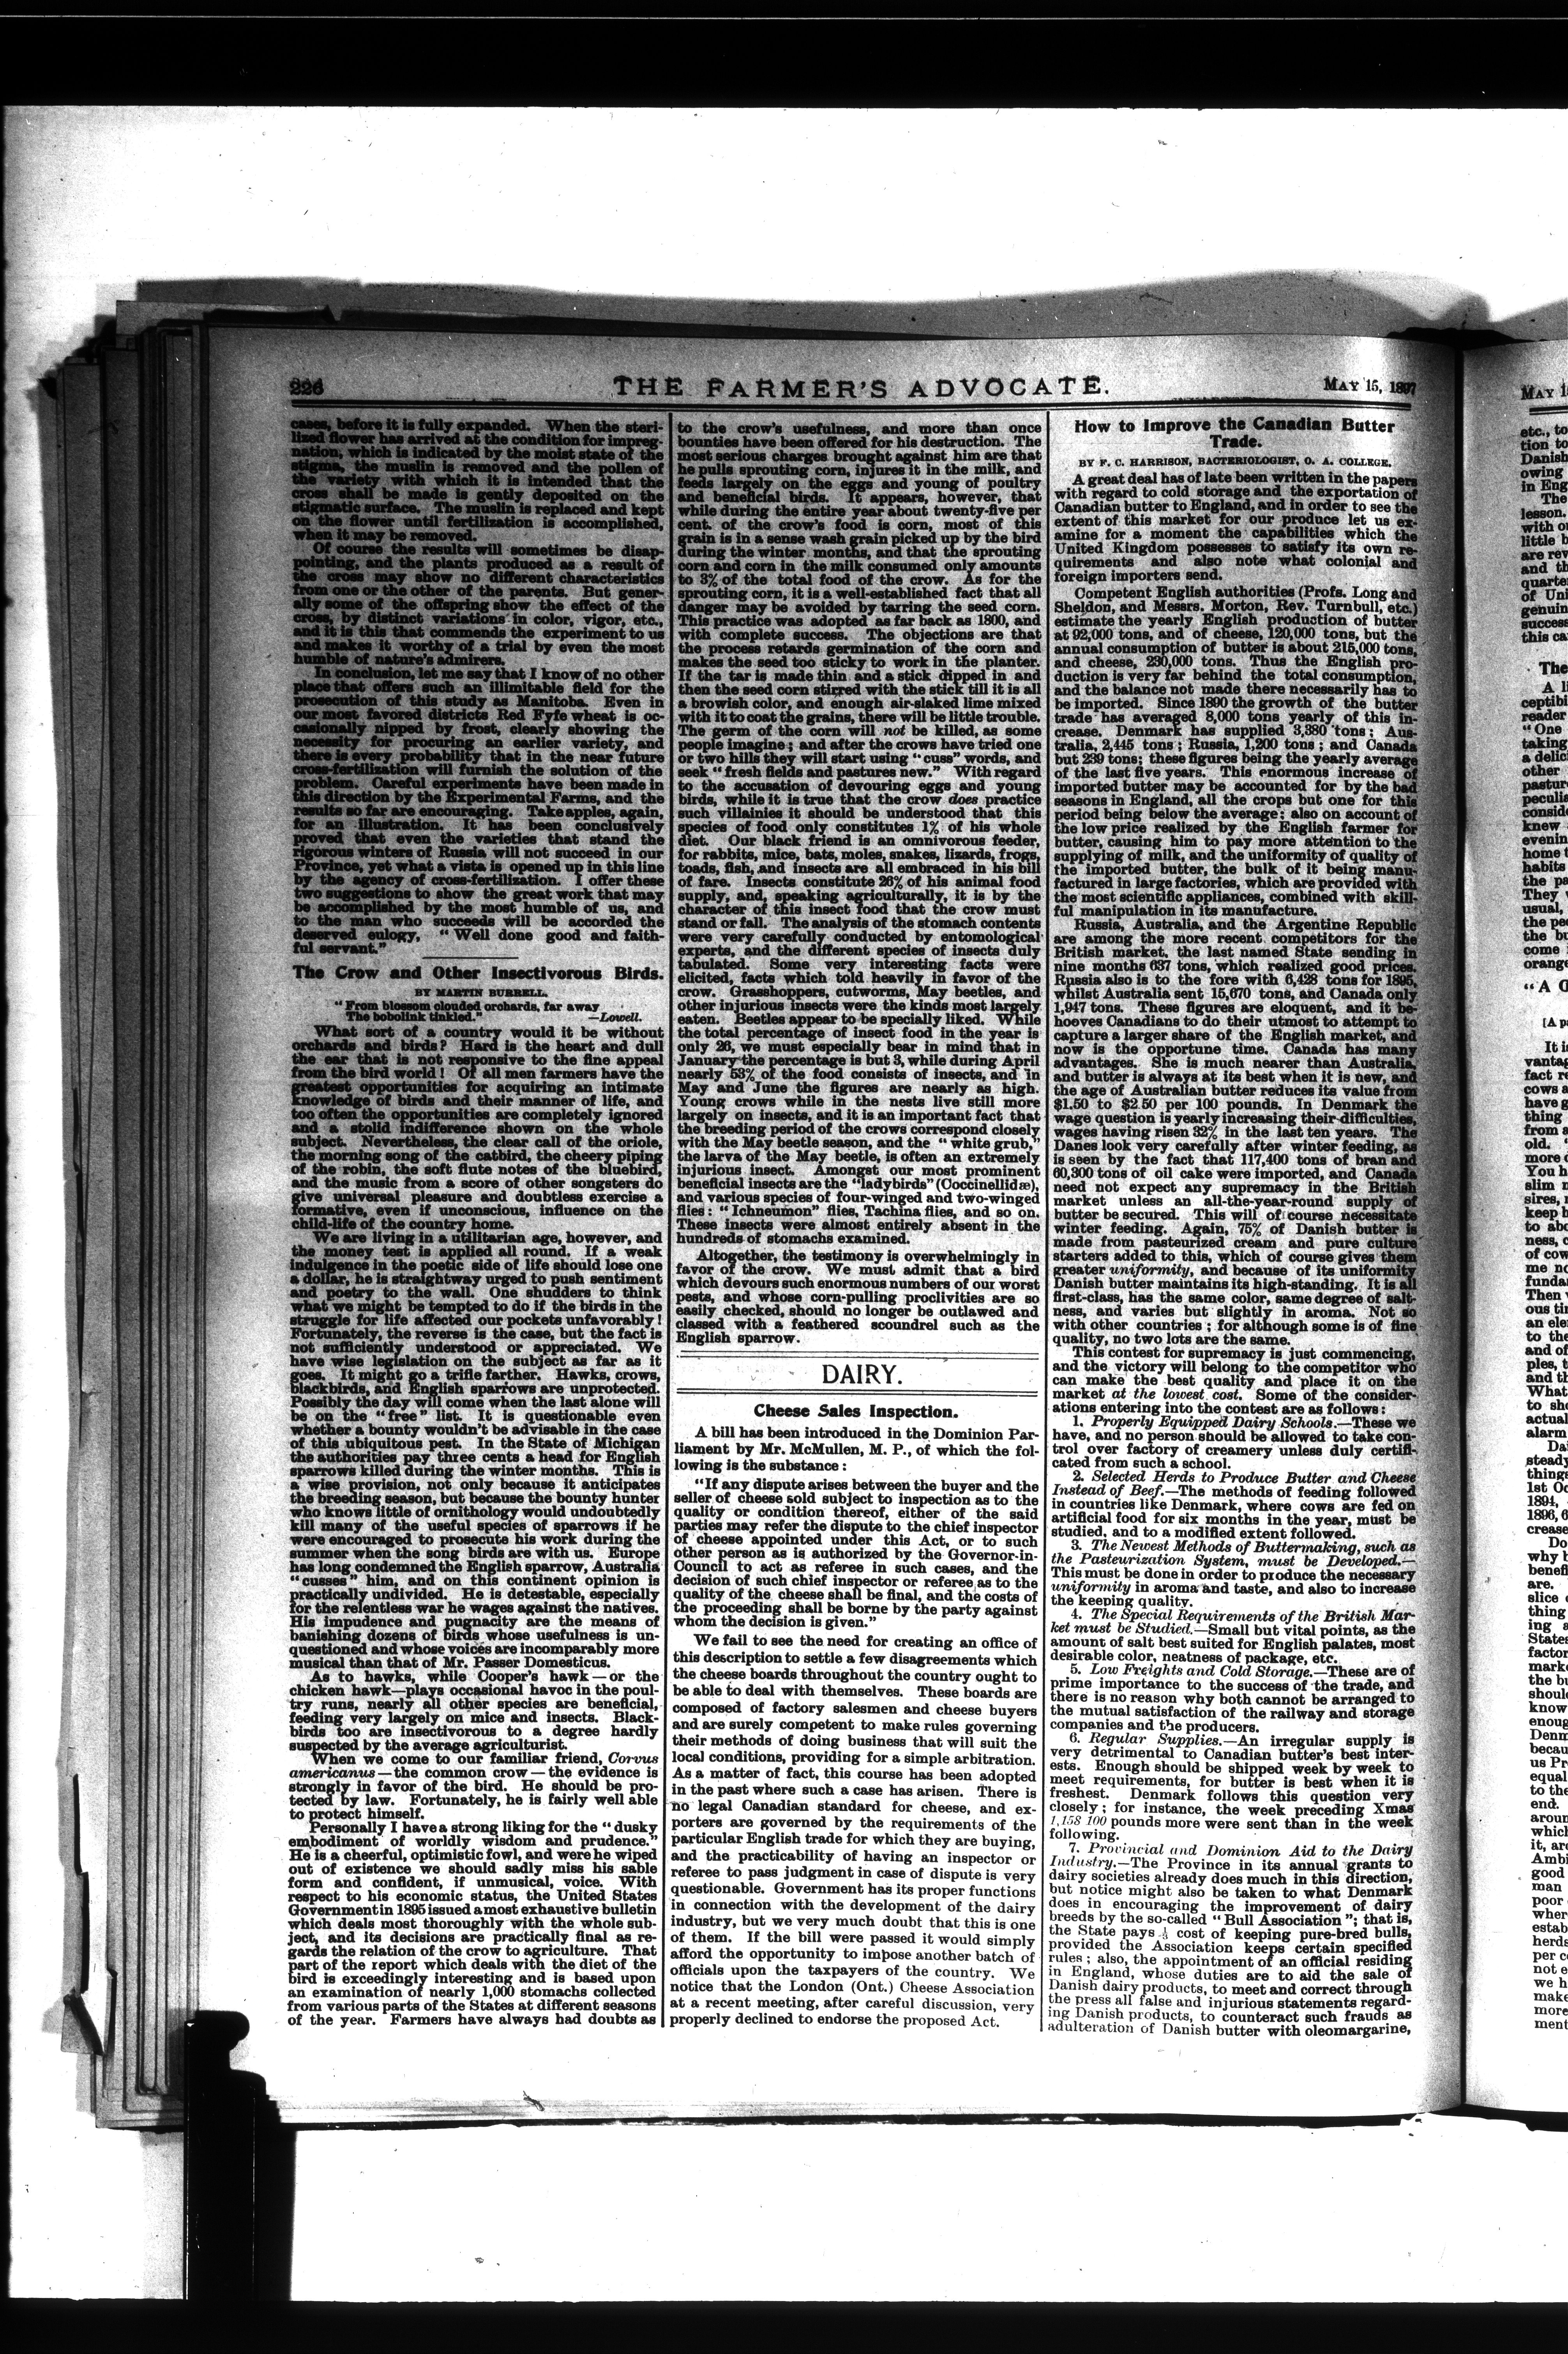 226
THE FARMER'S ADVOCATE.
MAY 15, 1897
cases, before it is fully expanded. When the steri-
lized flower has arrived at the condition for impreg-
nation, which is indicated by the moist state of the
stigma, the muslin is removed and the pollen of
the variety with which it is intended that the
cross shall be made is gently deposited on the
stigmatic surface. The muslin is replaced and kept
on the flower until fertilization is accomplished,
when it may be removed.
Of course the results will sometimes be disap-
pointing, and the plants produced as a result of
the cross may show no different characteristics
from one or the other of the parents. But gener-
ally some of the offspring show the effect of the
cross, by distinct variations in color, vigor, etc.,
and it is this that commends the experiment to us
and makes it worthy of a trial by even the most
humble of nature's admirers.
In conclusion, let me say that I know of no other
place that offers such an illimitable field for the
prosecution of this study as Manitoba. Even in
our most favored districts Red Fyfe wheat is oc-
casionally nipped by frost, clearly showing the
necessity for procuring an earlier variety, and
there is every probability that in the near future
cross-fertilization will furnish the solution of the
problem. Careful experiments have been made in
this direction by the Experimental Farms, and the
results so far are encouraging. Take apples, again,
for an illustration. It has been conclusively
proved that even the varieties that stand the
rigorous winters of Russia will not succeed in our
Province, yet what a vista is opened up in this line
by the agency of cross-fertilization. I offer these
two suggestions to show the great work that may
be accomplished by the most humble of us, and
to the man who succeeds will be accorded the
deserved eulogy, "Well done good and faith-
ful servant."
The Crow and Other Insectivorous Birds.
BY MARTIN BURRELL.
"From blossom clouded orchards, far away
The bobolink tinkled." —Lowell.
What sort of a country would it be without
orchards and birds? Hard is the heart and dull
the ear that is not responsive to the fine appeal
from the bird world! Of all men farmers have the
greatest opportunities for acquiring an intimate
knowledge of birds and their manner of life, and
too often the opportunities are completely ignored
and a stolid indifference shown on the whole
subject. Nevertheless, the clear call of the oriole,
the morning song of the catbird, the cheery piping
of the robin, the soft flute notes of the bluebird,
and the music from a score of other songsters do
give universal pleasure and doubtless exercise a
formative, even if unconscious, influence on the
child-life of the country home.
We are living in a utilitarian age, however, and
the money test is applied all round. If a weak
indulgence in the poetic side of life should lose one
a dollar, he is straightway urged to push sentiment
and poetry to the wall. One shudders to think
what we might be tempted to do if the birds in the
struggle for life affected our pockets unfavorably!
Fortunately, the reverse is the case, but the fact is
not sufficiently understood or appreciated. We
have wise legislation on the subject as far as it
goes. It might go a trifle farther. Hawks, crows,
blackbirds, and English sparrows are unprotected.
Possibly the day will come when the last alone will
be on the "free" list. It is questionable even
whether a bounty wouldn't be advisable in the case
of this ubiquitous pest. In the State of Michigan
the authorities pay three cents a head for English
sparrows killed during the winter months. This is
a wise provision, not only because it anticipates
the breeding season, but because the bounty hunter
who knows little of ornithology would undoubtedly
kill many of the useful species of sparrows if he
were encouraged to prosecute his work during the
summer when the song birds are with us. Europe
has long condemned the English sparrow, Australia
"cusses" him, and on this continent opinion is
practically undivided. He is detestable, especially
for the relentless war he wages against the natives.
His impudence and pugnacity are the means of
banishing dozens of birds whose usefulness is un-
questioned and whose voices are incomparably more
musical than that of Mr. Passer Domesticus.
As to hawks, while Cooper's hawk—or the
chicken hawk—plays occasional havoc in the poul-
try runs, nearly all other species are beneficial,
feeding very largely on mice and insects. Black-
birds too are insectivorous to a degree hardly
suspected by the average agriculturist.
When we come to our familiar friend, Corvus
americanus—the common crow—the evidence is
strongly in favor of the bird. He should be pro-
tected by law. Fortunately, he is fairly well able
to protect himself.
Personally I have a strong liking for the "dusky
embodiment of worldly wisdom and prudence."
He is a cheerful, optimistic fowl, and were he wiped
out of existence we should sadly miss his sable
form and confident, if unmusical, voice. With
respect to his economic status, the United States
Government in 1895 issued a most exhaustive bulletin
which deals most thoroughly with the whole sub-
ject, and its decisions are practically final as re-
gards the relation of the crow to agriculture. That
part of the report which deals with the diet of the
bird is exceedingly interesting and is based upon
an examination of nearly 1,000 stomachs collected
from various parts of the States at different seasons
of the year. Farmers have always had doubts as
to the crow's usefulness, and more than once
bounties have been offered for his destruction. The
most serious charges brought against him are that
he pulls sprouting corn, injures it in the milk, and
feeds largely on the eggs and young of poultry
and beneficial birds. It appears, however, that
while during the entire year about twenty-five per
cent. of the crow's food is corn, most of this
grain is in a sense wash grain picked up by the bird
during the winter months, and that the sprouting
corn and corn in the milk consumed only amounts
to 3% of the total food of the crow. As for the
sprouting corn, it is a well-established fact that all
danger may be avoided by tarring the seed corn.
This practice was adopted as far back as 1800, and
with complete success. The objections are that
the process retards germination of the corn and
makes the seed too sticky to work in the planter.
If the tar is made thin and a stick dipped in and
then the seed corn stirred with the stick till it is all
a browish color, and enough air-slaked lime mixed
with it to coat the grains, there will be little trouble.
The germ of the corn will not be killed, as some
people imagine; and after the crows have tried one
or two hills they will start using "cuss" words, and
seek "fresh fields and pastures new." With regard
to the accusation of devouring eggs and young
birds, while it is true that the crow does practice
such villainies it should be understood that this
species of food only constitutes 1% of his whole
diet. Our black friend is an omnivorous feeder,
for rabbits, mice, bats, moles, snakes, lizards, frogs,
toads, fish, and insects are all embraced in his bill
of fare. Insects constitute 26% of his animal food
supply, and, speaking agriculturally, it is by the
character of this insect food that the crow must
stand or fall. The analysis of the stomach contents
were very carefully conducted by entomological
experts, and the different species of insects duly
tabulated. Some very interesting facts were
elicited, facts which told heavily in favor of the
crow. Grasshoppers, cutworms, May beetles, and
other injurious insects were the kinds most largely
eaten. Beetles appear to be specially liked. While
the total percentage of insect food in the year is
only 26, we must especially bear in mind that in
January the percentage is but 3, while during April
nearly 53% of the food consists of insects, and in
May and June the figures are nearly as high.
Young crows while in the nests live still more
largely on insects, and it is an important fact that
the breeding period of the crows correspond closely
with the May beetle season, and the "white grub,"
the larva of the May beetle, is often an extremely
injurious insect. Amongst our most prominent
beneficial insects are the "ladybirds" (Coccinellidæ),
and various species of four-winged and two-winged
flies: "Ichneumon" flies, Tachina flies, and so on.
These insects were almost entirely absent in the
hundreds of stomachs examined.
Altogether, the testimony is overwhelmingly in
favor of the crow. We must admit that a bird
which devours such enormous numbers of our worst
pests, and whose corn-pulling proclivities are so
easily checked, should no longer be outlawed and
classed with a feathered scoundrel such as the
English sparrow.
DAIRY.
Cheese Sales Inspection.
A bill has been introduced in the Dominion Par-
liament by Mr. McMullen, M. P., of which the fol-
lowing is the substance:
"If any dispute arises between the buyer and the
seller of cheese sold subject to inspection as to the
quality or condition thereof, either of the said
parties may refer the dispute to the chief inspector
of cheese appointed under this Act, or to such
other person as is authorized by the Governor-in-
Council to act as referee in such cases, and the
decision of such chief inspector or referee as to the
quality of the cheese shall be final, and the costs of
the proceeding shall be borne by the party against
whom the decision is given."
We fail to see the need for creating an office of
this description to settle a few disagreements which
the cheese boards throughout the country ought to
be able to deal with themselves. These boards are
composed of factory salesmen and cheese buyers
and are surely competent to make rules governing
their methods of doing business that will suit the
local conditions, providing for a simple arbitration.
As a matter of fact, this course has been adopted
in the past where such a case has arisen. There is
no legal Canadian standard for cheese, and ex-
porters are governed by the requirements of the
particular English trade for which they are buying,
and the practicability of having an inspector or
referee to pass judgment in case of dispute is very
questionable. Government has its proper functions
in connection with the development of the dairy
industry, but we very much doubt that this is one
of them. If the bill were passed it would simply
afford the opportunity to impose another batch of
officials upon the taxpayers of the country. We
notice that the London (Ont.) Cheese Association
at a recent meeting, after careful discussion, very
properly declined to endorse the proposed Act.
How to Improve the Canadian Butter
Trade.
BY F. C. HARRISON, BACTERIOLOGIST, O. A. COLLEGE.
A great deal has of late been written in the papers
with regard to cold storage and the exportation of
Canadian butter to England, and in order to see the
extent of this market for our produce let us ex-
amine for a moment the capabilities which the
United Kingdom possesses to satisfy its own re-
quirements and also note what colonial and
foreign importers send.
Competent English authorities (Profs. Long and
Sheldon, and Messrs. Morton, Rev. Turnbull, etc.)
estimate the yearly English production of butter
at 92,000 tons, and of cheese, 120,000 tons, but the
annual consumption of butter is about 215,000 tons,
and cheese, 230,000 tons. Thus the English pro-
duction is very far behind the total consumption,
and the balance not made there necessarily has to
be imported. Since 1890 the growth of the butter
trade has averaged 8,000 tons yearly of this in-
crease. Denmark has supplied 3,380 tons; Aus-
tralia, 2,445 tons; Russia, 1,200 tons; and Canada
but 239 tons; these figures being the yearly average
of the last five years. This enormous increase of
imported butter may be accounted for by the bad
seasons in England, all the crops but one for this
period being below the average; also on account of
the low price realized by the English farmer for
butter, causing him to pay more attention to the
supplying of milk, and the uniformity of quality of
the imported butter, the bulk of it being manu-
factured in large factories, which are provided with
the most scientific appliances, combined with skill-
ful manipulation in its manufacture.
Russia, Australia, and the Argentine Republic
are among the more recent competitors for the
British market, the last named State sending in
nine months 637 tons, which realized good prices.
Russia also is to the fore with 6,428 tons for 1895,
whilst Australia sent 15,670 tons, and Canada only
1,947 tons. These figures are eloquent, and it be-
hooves Canadians to do their utmost to attempt to
capture a larger share of the English market, and
now is the opportune time. Canada has many
advantages. She is much nearer than Australia,
and butter is always at its best when it is new, and
the age of Australian butter reduces its value from
$1.50 to $2.50 per 100 pounds. In Denmark the
wage question is yearly increasing their difficulties,
wages having risen 32% in the last ten years. The
Danes look very carefully after winter feeding, as
is seen by the fact that 117,400 tons of bran and
60,300 tons of oil cake were imported, and Canada
need not expect any supremacy in the British
market unless an all-the-year-round supply of
butter be secured. This will of course necessitate
winter feeding. Again, 75% of Danish butter is
made from pasteurized cream and pure culture
starters added to this, which of course gives them
greater uniformity, and because of its uniformity
Danish butter maintains its high-standing. It is all
first-class, has the same color, same degree of salt-
ness, and varies but slightly in aroma. Not so
with other countries; for although some is of fine
quality, no two lots are the same.
This contest for supremacy is just commencing,
and the victory will belong to the competitor who
can make the best quality and place it on the
market at the lowest cost. Some of the consider-
ations entering into the contest are as follows:
1. Properly Equipped Dairy Schools.—These we
have, and no person should be allowed to take con-
trol over factory of creamery unless duly certifi-
cated from such a school.
2. Selected Herds to Produce Butter and Cheese
Instead of Beef.—The methods of feeding followed
in countries like Denmark, where cows are fed on
artificial food for six months in the year, must be
studied, and to a modified extent followed.
3. The Newest Methods of Buttermaking, such as
the Pasteurization System, must be Developed.—
This must be done in order to produce the necessary
uniformity in aroma and taste, and also to increase
the keeping quality.
4. The Special Requirements of the British Mar-
ket must be Studied.—Small but vital points, as the
amount of salt best suited for English palates, most
desirable color, neatness of package, etc.
5. Low Freights and Cold Storage.—These are of
prime importance to the success of the trade, and
there is no reason why both cannot be arranged to
the mutual satisfaction of the railway and storage
companies and the producers.
6. Regular Supplies.—An irregular supply is
very detrimental to Canadian butter's best inter-
ests. Enough should be shipped week by week to
meet requirements, for butter is best when it is
freshest. Denmark follows this question very
closely; for instance, the week preceding Xmas
1,158 100 pounds more were sent than in the week
following.
7. Provincial and Dominion Aid to the Dairy
Industry.—The Province in its annual grants to
dairy societies already does much in this direction,
but notice might also be taken to what Denmark
does in encouraging the improvement of dairy
breeds by the so-called "Bull Association"; that is,
the State pays cost of keeping pure-bred bulls,
provided the Association keeps certain specified
rules; also, the appointment of an official residing
in England, whose duties are to aid the sale of
Danish dairy products, to meet and correct through
the press all false and injurious statements regard-
ing Danish products, to counteract such frauds as
adulteration of Danish butter with oleomargarine,